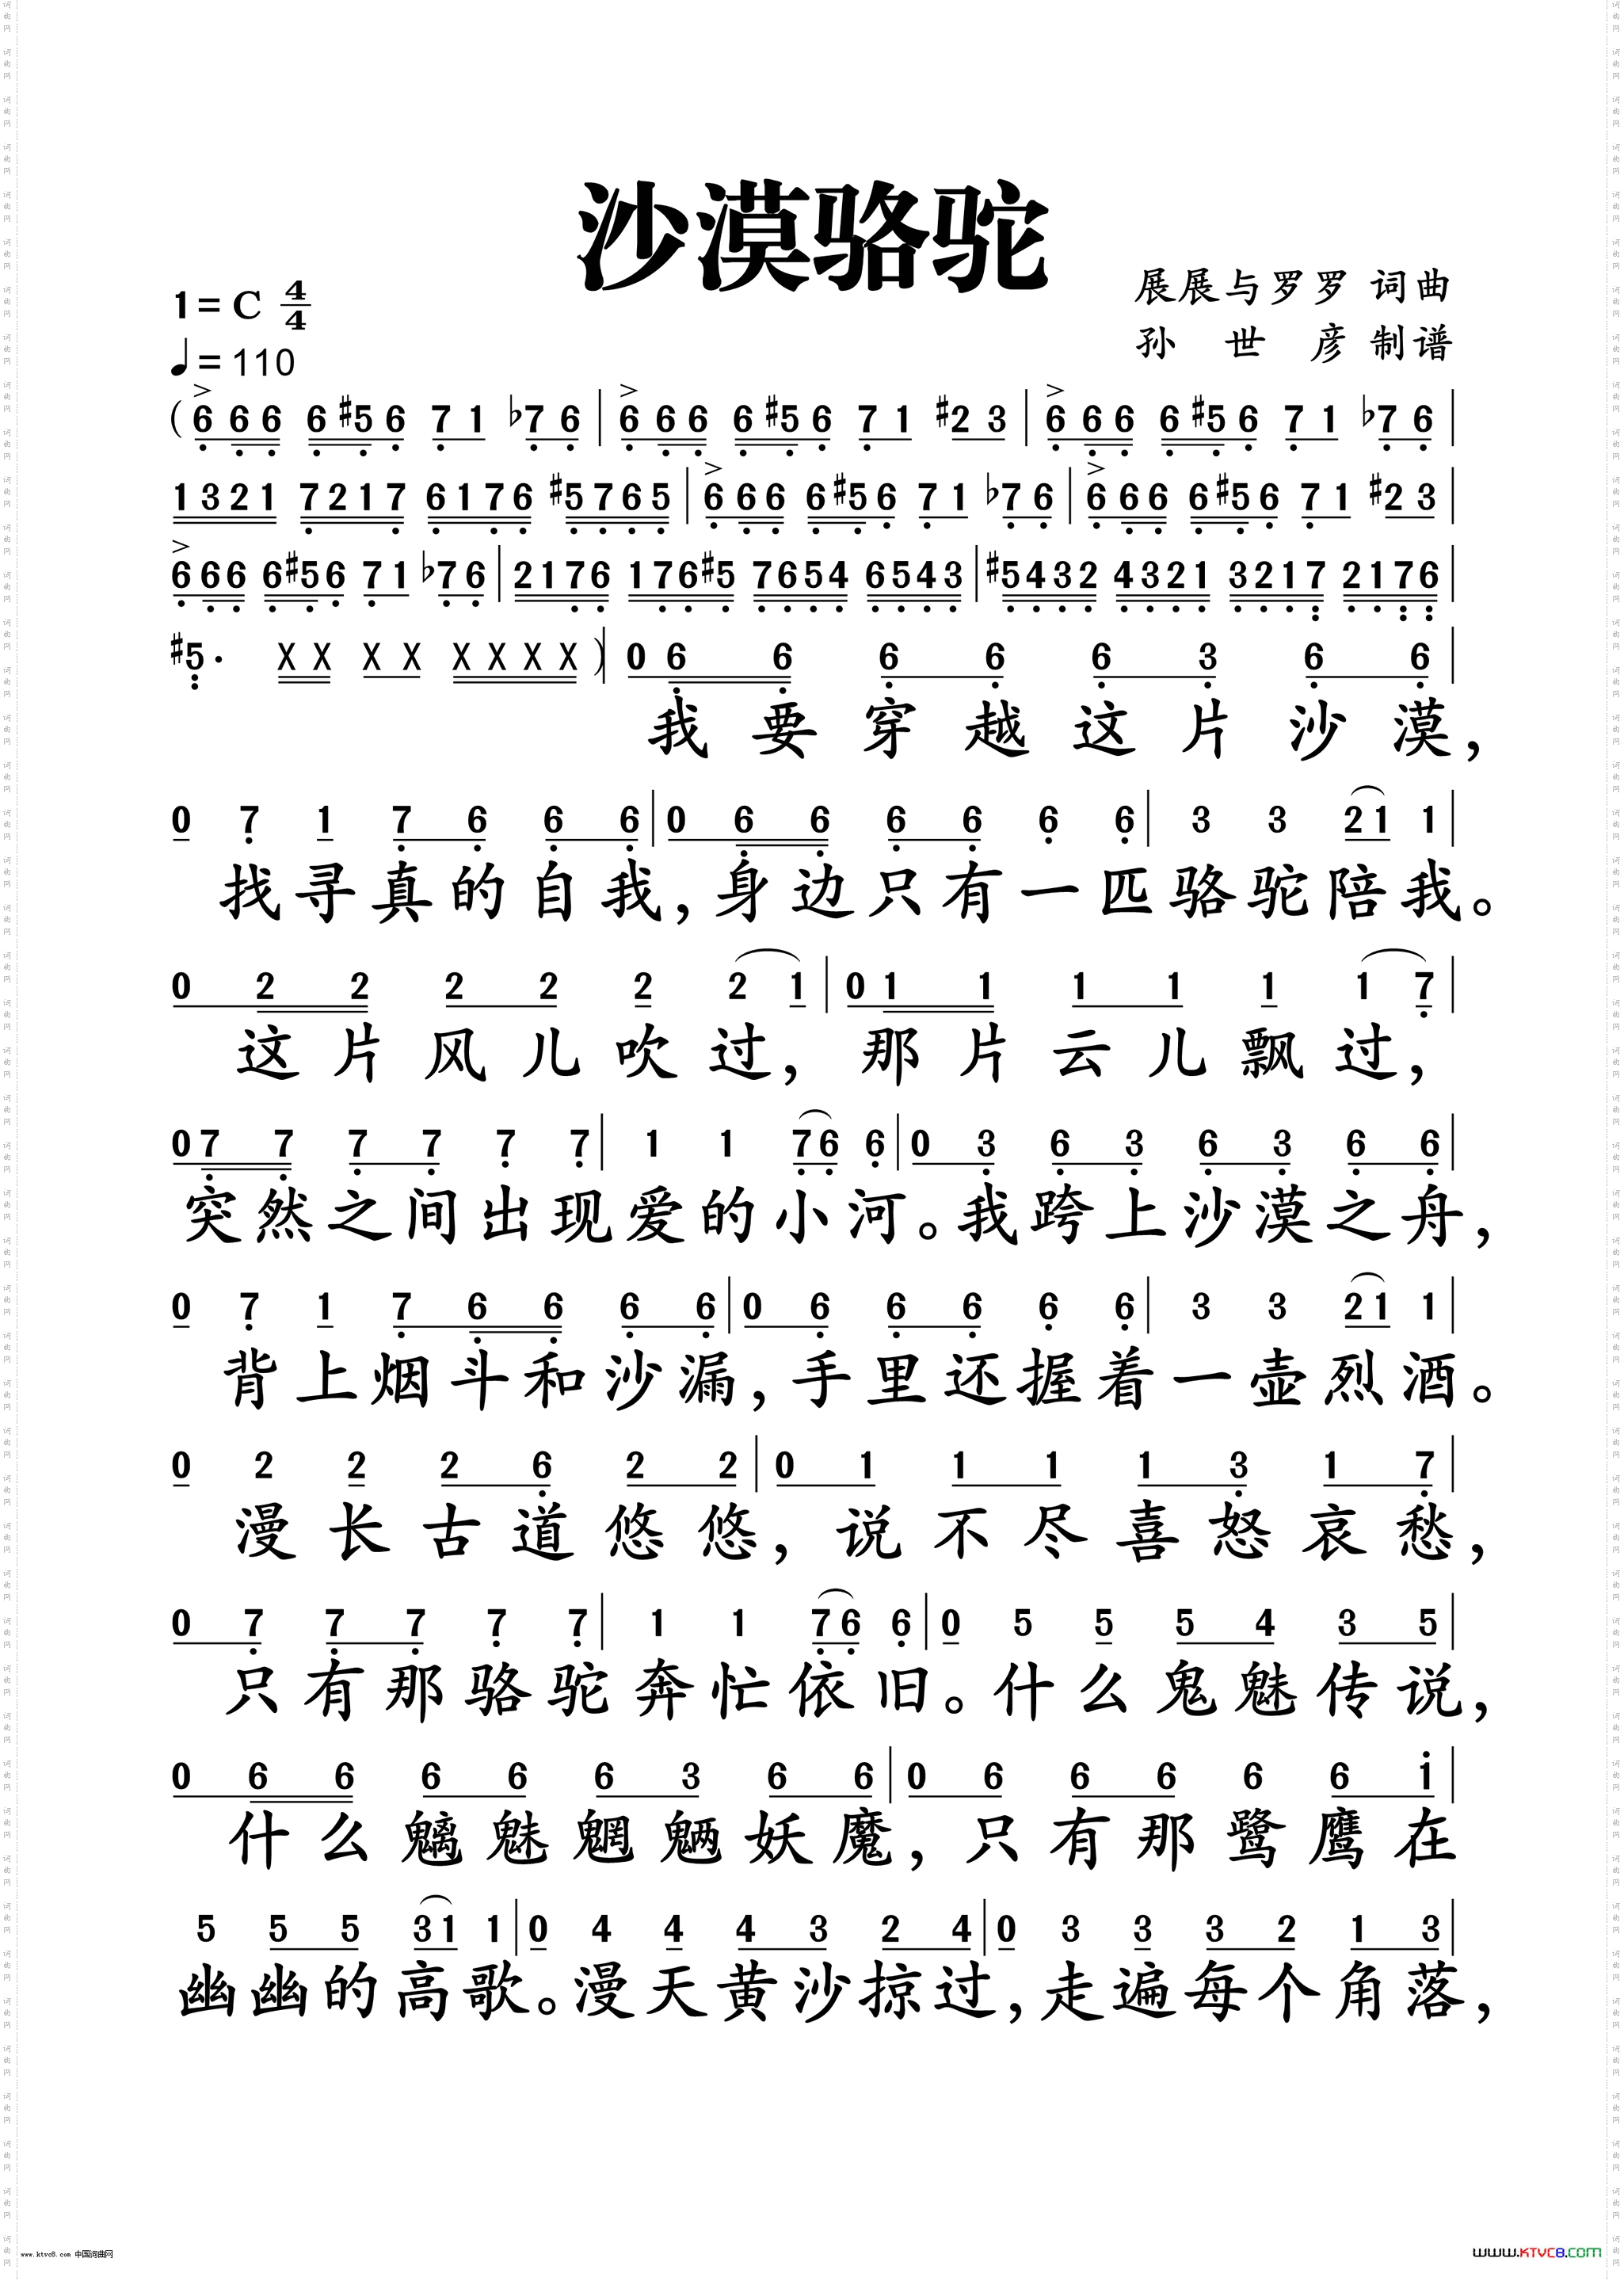 沙漠骆驼
1=C 4/4
展展与罗罗 词曲
♩=110
孙 世 彦 制谱
(6 6 6 6 #5 6 7 1 b7 6 | 6 6 6 6 #5 6 7 1 #2 3 | 6 6 6 6 #5 6 7 1 b7 6 |
1 3 2 1 7 2 1 7 6 1 7 6 #5 7 6 5 | 6 6 6 6 #5 6 7 1 b7 6 | 6 6 6 6 #5 6 7 1 #2 3 |
6 6 6 6 #5 6 7 1 b7 6 | 2 1 7 6 1 7 6 #5 7 6 5 4 6 5 4 3 | #5 4 3 2 4 3 2 1 3 2 1 7 2 1 7 6 |
#5. X X X X X X X X ) | 0 6 6 6 6 6 3 6 6 |
我要穿越这片沙漠，
0 7 1 7 6 6 6 | 0 6 6 6 6 6 6 | 3 3 2 1 1 |
找寻真的自我，身边只有一匹骆驼陪我。
0 2 2 2 2 2 2 1 | 0 1 1 1 1 1 1 7 |
这片风儿吹过，那片云儿飘过，
0 7 7 7 7 7 7 | 1 1 7 6 6 | 0 3 6 3 6 3 6 6 |
突然之间出现爱的小河。我跨上沙漠之舟，
0 7 1 7 6 6 6 6 | 0 6 6 6 6 6 | 3 3 2 1 1 |
背上烟斗和沙漏，手里还握着一壶烈酒。
0 2 2 2 6 2 2 | 0 1 1 1 1 3 1 7 |
漫长古道悠悠，说不尽喜怒哀愁，
0 7 7 7 7 7 | 1 1 7 6 6 | 0 5 5 5 4 3 5 |
只有那骆驼奔忙依旧。什么鬼魅传说，
0 6 6 6 6 6 3 6 6 | 0 6 6 6 6 6 i |
什么魑魅魍魉妖魔，只有那鹭鹰在
5 5 5 3 1 1 | 0 4 4 4 3 2 4 | 0 3 3 3 2 1 3 |
幽幽的高歌。漫天黄沙掠过，走遍每个角落，
www.ktvc8.com 中国词曲网
WWW.KTVC8.COM